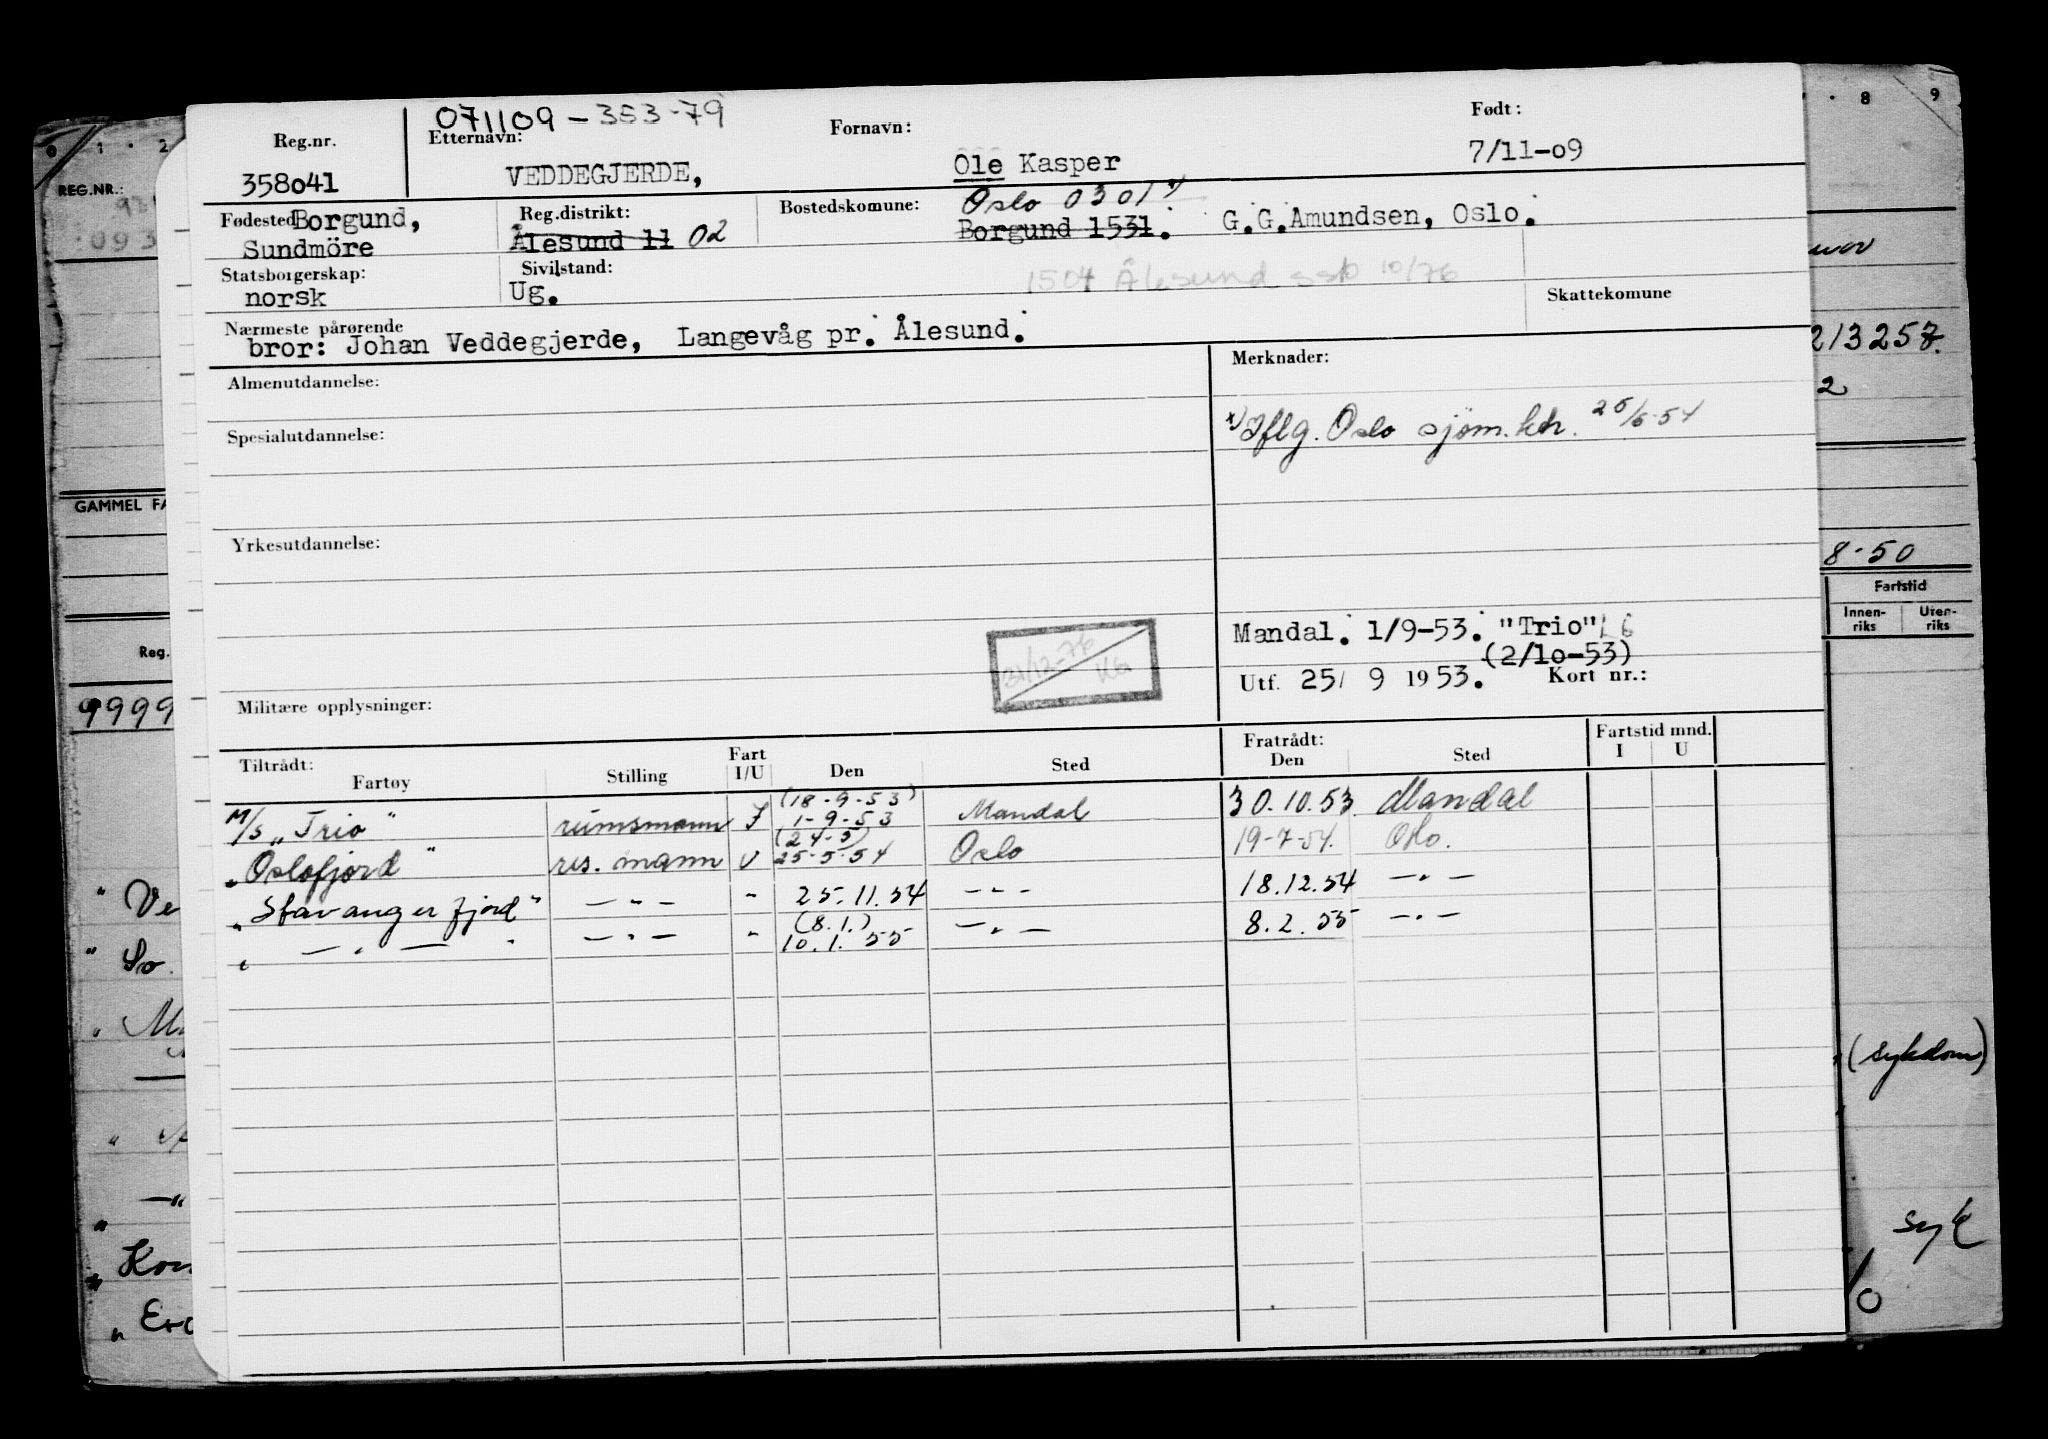 071109-353-79
Reg.nr. Etternavn: Fornavn: Født:
358041 VEDDEGJERDE, Ole Kasper 7/11-09
Fødested Borgund, Sundmöre Reg.distrikt: Ålesund 11 02 Bostedskomune: Oslo 0301 x) Borgund 1531. G.G.Amundsen, Oslo.
Statsborgerskap: norsk Sivilstand: Ug. 1504 Ålesund ssb 10/76
Skattekomune
Nærmeste pårørende
bror: Johan Veddegjerde, Langevåg pr. Ålesund.
Almenutdannelse: Merknader:
x) Iflg. Oslo sjøm.ktr. 25/5-54
Spesialutdannelse:
Yrkesutdannelse:
Mandal. 1/9-53. "Trio" L6
(2/10-53)
31/12-76
Utf. 25/ 9 1953. Kort nr.:
Militære opplysninger:
Tiltrådt: Fratrådt: Fartstid mnd.
Fartøy Stilling Fart I/U Den Sted Den Sted I U
M/S "Trio" rumsmann I (18-9-53) 1-9-53 Mandal 30.10.53 Mandal
" Oslofjord " res. mann U (24-5) 25-5-54 Oslo 19-7-54. Oslo.
" Stavangerfjord " — " — " 25.11.54 — " — 18.12.54 — " —
" — " — " — " — " (8.1.) 10.1.55 — " — 8.2.55 — " —
0 1 2
REG.NR.:
GAMMEL FA
Reg.
9999
" Ve
" So
" M
" Kon
8 9
213257.
2
8-50
Fartstid
Innen-riks Uten-riks
(sykdom)
syk